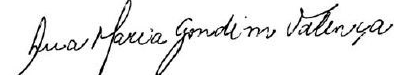 Ana Maria Gondim Valença